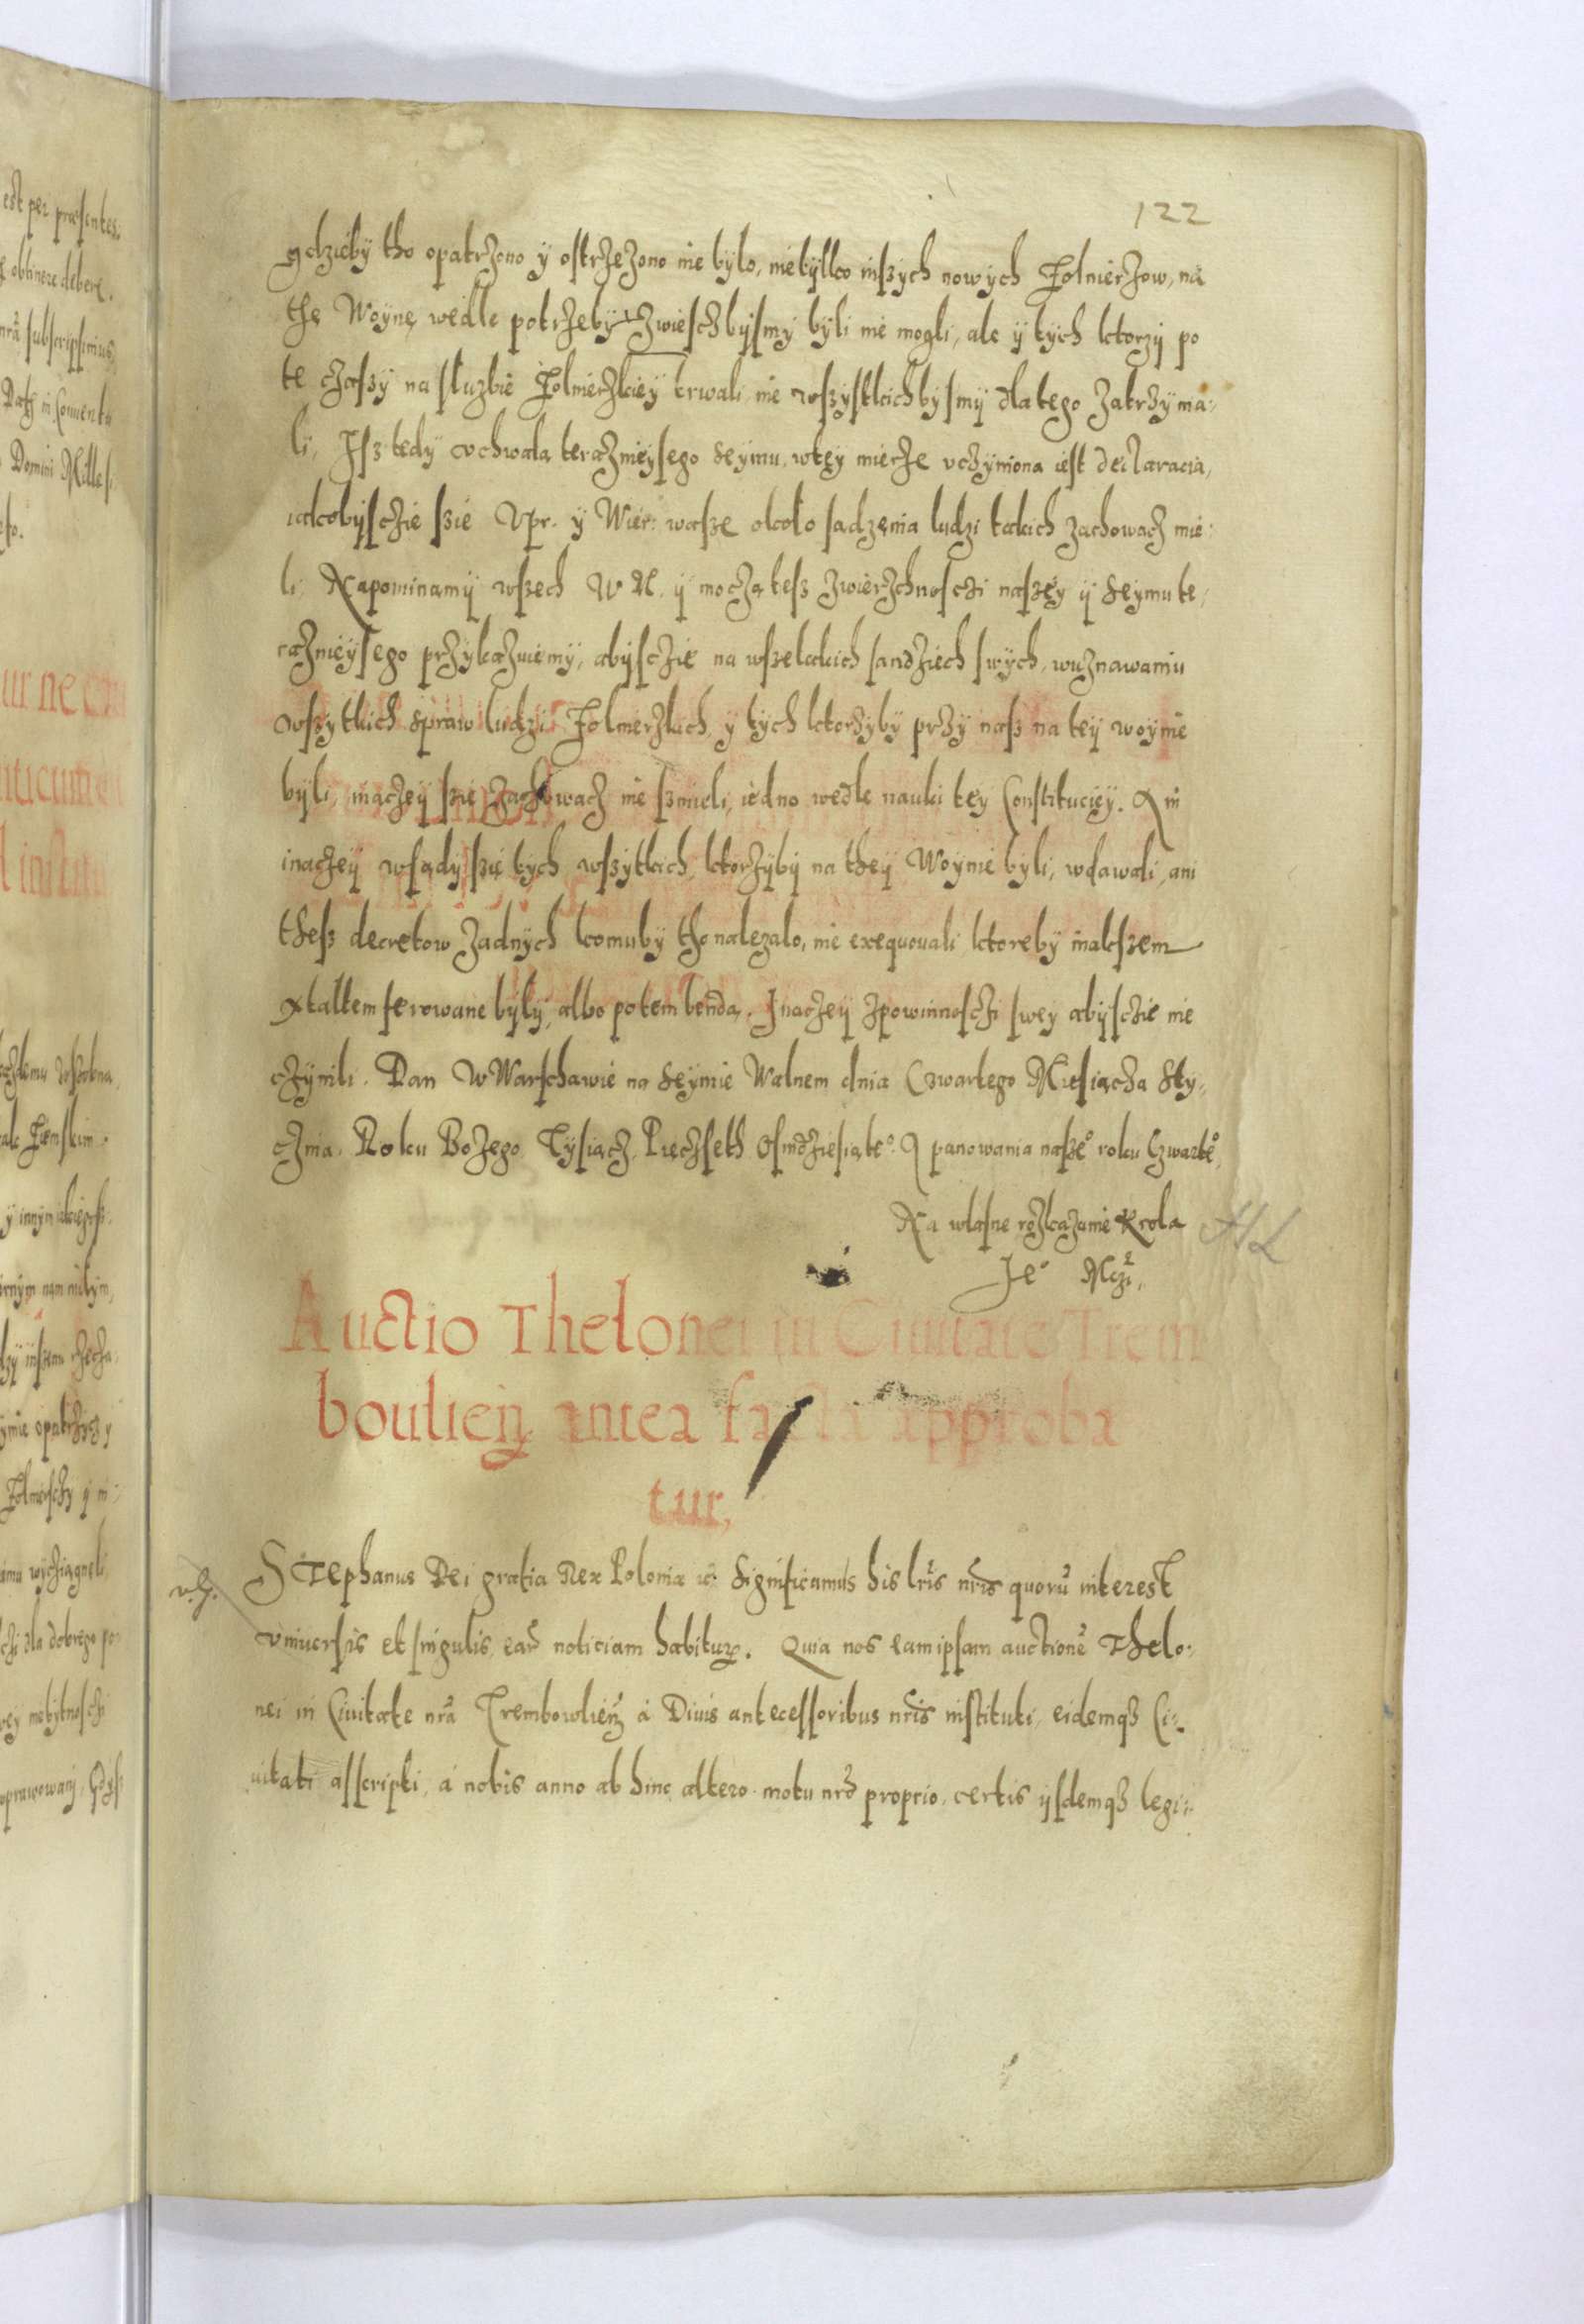 122
gdzieby tho opatrzono y ostrzezono nie bylo, nietylko inszych nowych Zolnierzow, na
thę Woynę wedle potrzeby zwieśczbysmy byli nie mogli, ale y tych ktorzy po
te czaszy na służbie Zolnierzkiey trwali nie wszystkichbysmy dlatego zatrzyma-
li, Isz tedy vchwała teraznieysego seymu, wtey mierze vczyniona iest declaracia,
iakobysczie szie Vpr. y Wier: wasze około sadzenia ludzi takich zachowacz mie-
li Napominamy wszech W N. y moczą tesz zwierzchnosczi naszey y seymu te-
raznieysego przykazuiemy, abysczie na wszelakich sandziech swych, wuznawaniu
wszytkich spraw ludzi Zolnierzkich y tych ktorzyby przy nasz na tey woynie
byli, inaczey szie zachowacz nie szmieli, iedno wedle nauki tey Constituciey. Ani
inaczey wsądy szię tych wszytkich, ktorzyby na they Woynie byli, wdawali, ani
thesz decretow zadnych komuby tho nalezalo, nie exequowali ktoreby inakszem
xtaltem ferowane były, albo potem bendą. Inaczey zpowinnosczi swey abysczie nie
czynili. Dan w Warschawie na seymie Walnem dnia Czwartego Miesiącza Sty-
cznia. Roku Bozego Tysiącz Pięczseth Osmdziesiąte° A panowania nasze° roku Czwarte°
Na własne rozkazanie Krola
Je° Mczi.
Auctio Thelonei in Ciuitate Trem
boulien antea facta approba
tur,
STephanus Dei gratia Rex Poloniæ ic Significamus his lris nris quorū interest
vniuersis et singulis, ear noticiam habitur. Quia nos eam ipsam auctionē Thelo-
nei in Ciuitate nra Trembowlien á Diuis antecessoribus nris instituti, eidemqз Ci-
uitati asscripti, á nobis anno ab hinc altero motu nro proprio, certis ijsdemqз legi-